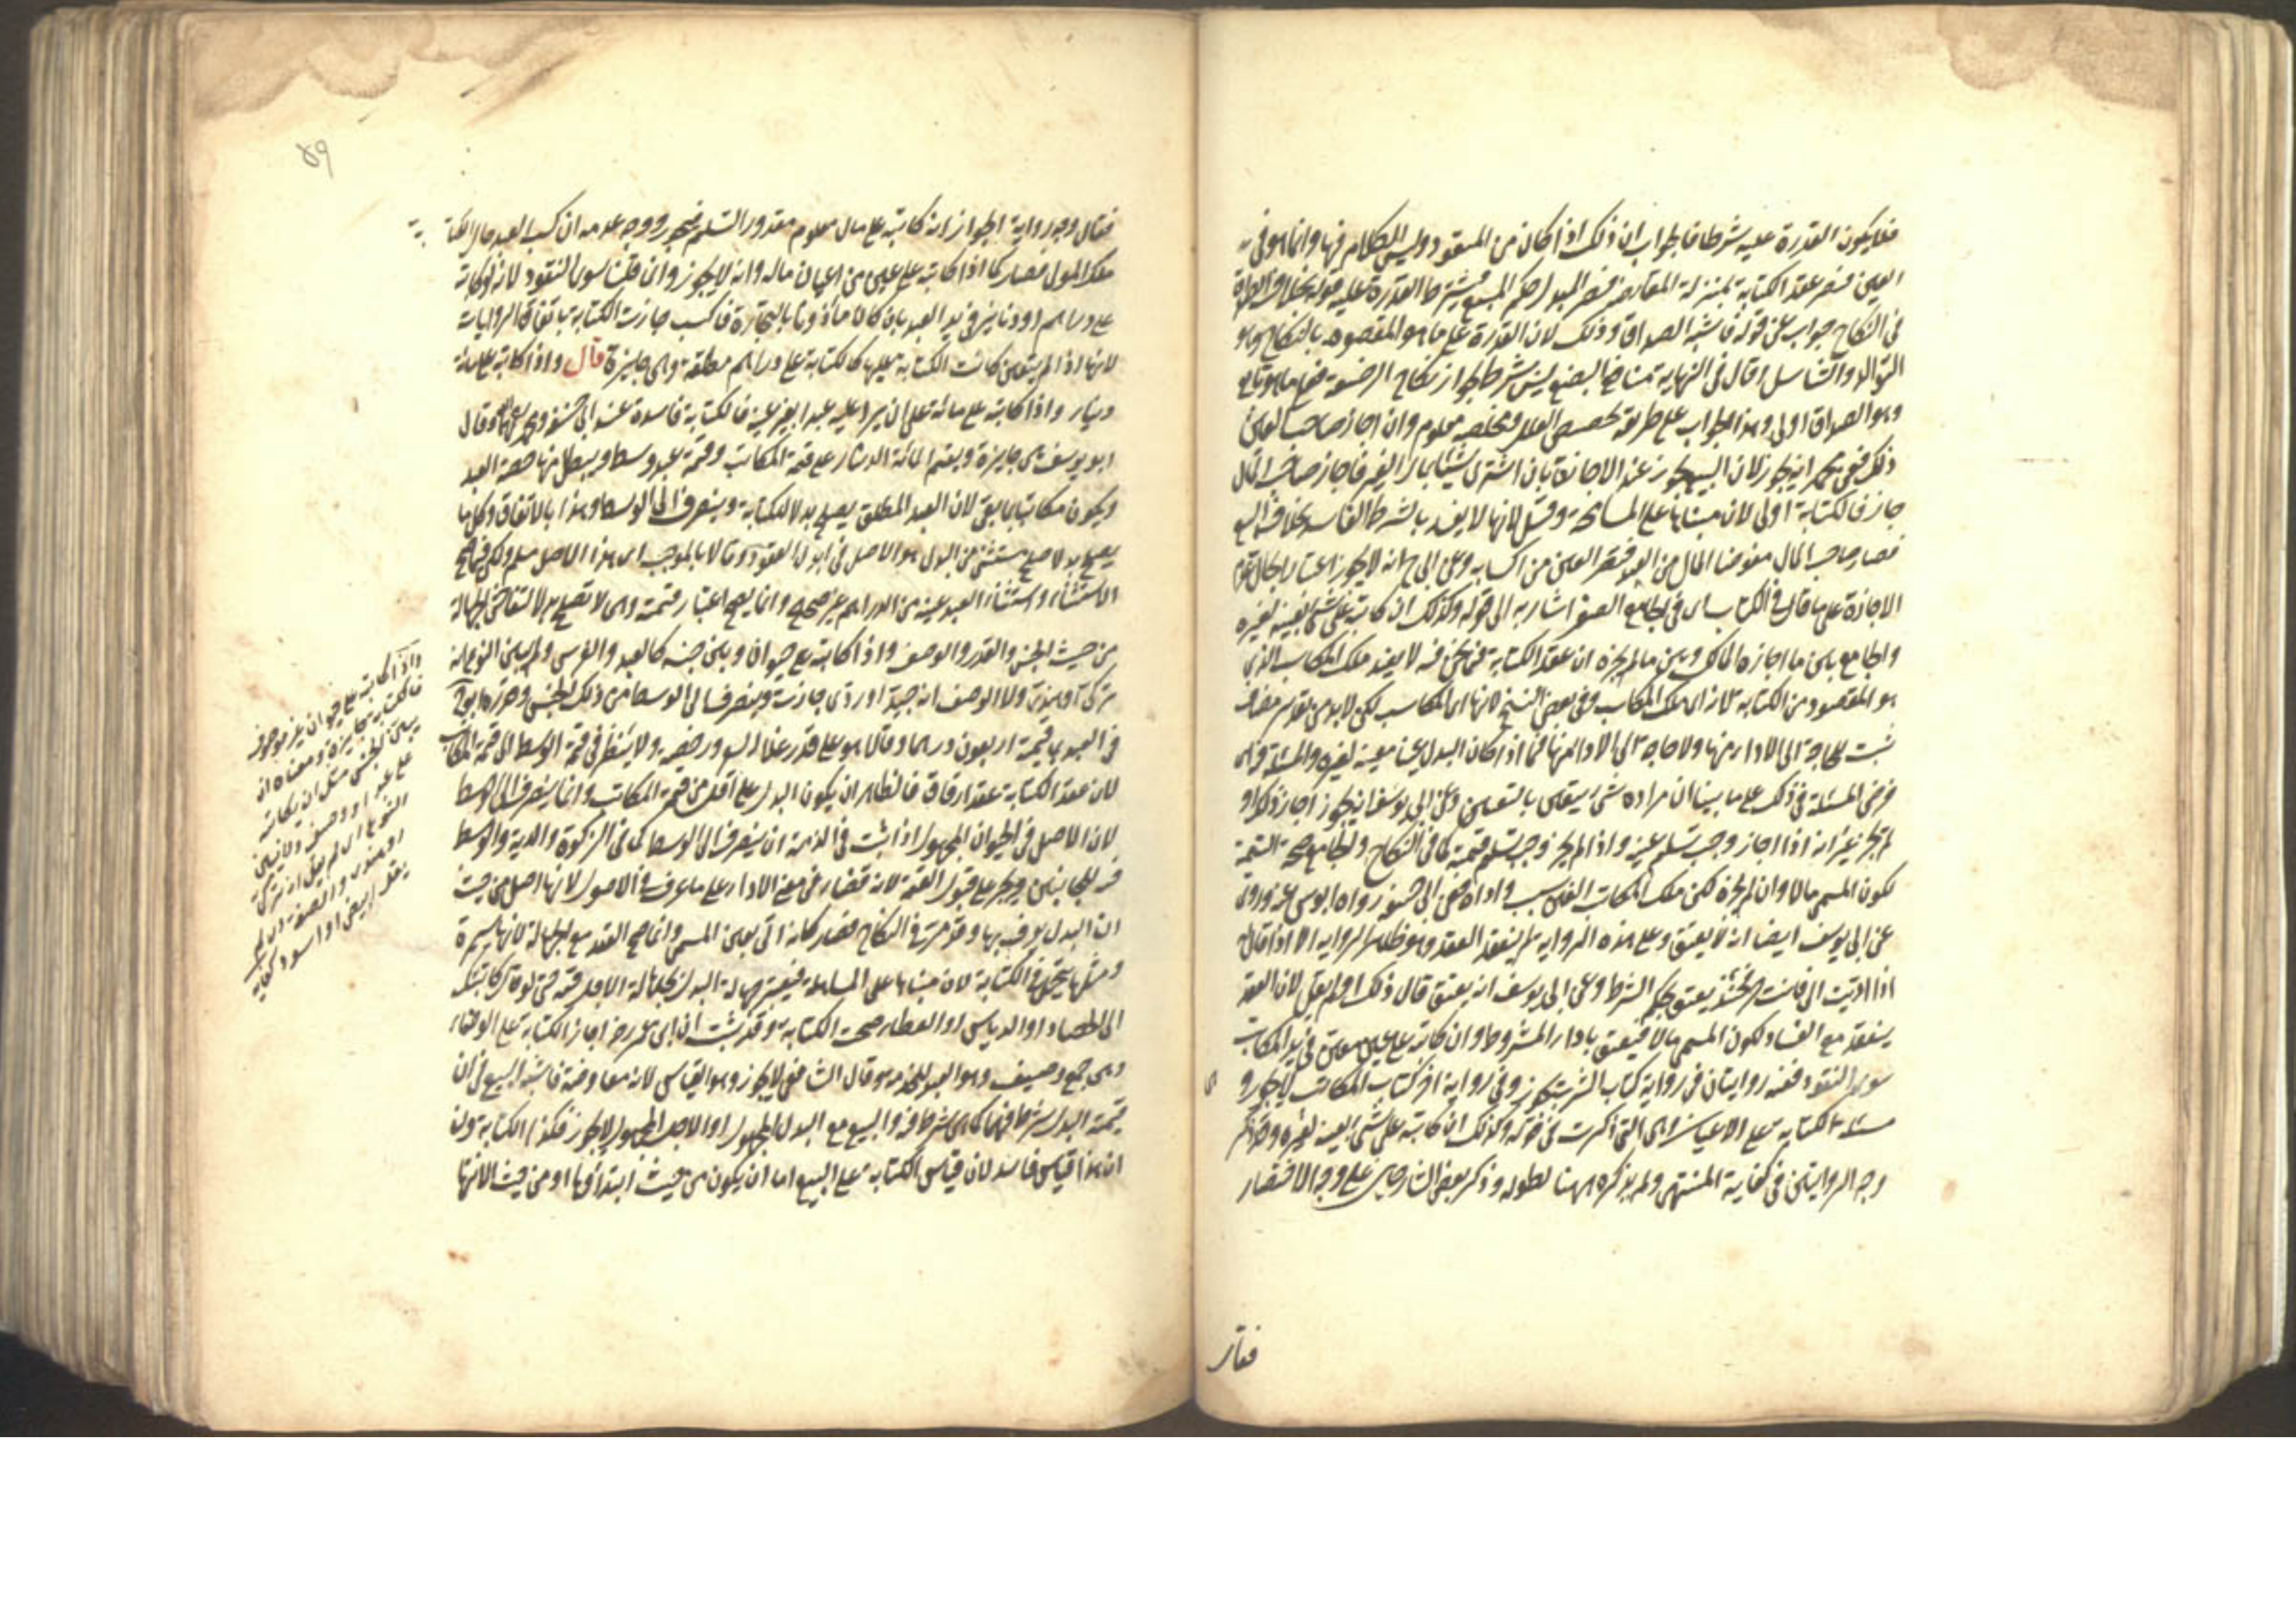 فلا يكون القدرة عليه شرطا فالجواب ان ذلك اذا كان من المعقود وليس الكلام فيها وانما هو في
العين فيصير عقد الكتابة بمنزلة المقايضة فيصير للبدل حكم المبيع فيشترط القدرة عليه قوله بخلاف الصداق
في النكاح جواب عن قوله فاشبه الصداق وذلك لان القدرة على ما هو المقصود بالنكاح وهو
التوالد والتناسل قال في النهاية منافع البضع ليس بشرط لجواز نكاح الرضيعة فيما هو تابع
وهو الصداق اولى وهذا الجواب على طريقة تخصيص العلل ومخلصه معلوم وان اجاز صاحب العين
ذلك فعن محمد انه يجوز لان البيع يجوز عند الاجازة بان اشترى شيئا بمال الغير فاجاز صاحب المال
جاز فالكتابة اولى لان مبناها على المسامحة وقيل لانها لا يفسد بالشرط الفاسد بخلاف البيع
فصار صاحب المال مقرضا المال من العبد فيصير العين من اكسابه وعن ابي ح انه لا يجوز اعتبارا بحال عدم
الاجازة على ما قال في الكتاب اي في الجامع الصغير اشار به الى قوله وكذلك ان كاتبه على شئ بعينه لغيره
والجامع بين ما اجازه المالك وبين ما لم يجزه ان عقد الكتابة فيما نحن فيه لا يفيد ملك المكاسب الذي
هو المقصود من الكتابة لانه اي ملك المكاسب وفي بعض النسخ لانها اي المكاسب لكن لابد من تقدير مضاف
تثبت للحاجة الى الاداء منها ولا حاجة الى الاداء منها فيما اذا كان البدل عينا معينة لغيره والمسئلة فيه اي
فرض المسئلة في ذلك على ما بينا ان مراده شئ يتعين بالتعيين وعن ابي يوسف انه يجوز اجاز ذلك او
لم يجز غير انه اذا اجاز وجب تسليم عينه واذا لم يجز وجب تسليم قيمته كما في النكاح والجامع صحة التسمية
لكون المسمى مالا وان لم يجزه لكن ملك المكاتب العين بسبب واداه فعن ابي حنيفة رواه ابو يوسف عنه وروي
عن ابي يوسف ايضا انه لا يعتق وعلى هذه الرواية لم ينعقد العقد وهو ظاهر الرواية الا اذا قال له
اذا اديت الي فانت حر فحينئذ يعتق بحكم الشرط وعن ابي يوسف انه يعتق قال ذلك او لم يقل لان العقد
ينعقد مع الفساد لكون المسمى مالا فيعتق باداء المشروط وان كاتبه على عين معين في يد المكاتب
سوى النقود ففيه روايتان في رواية كتاب الشرب يجوز وفي رواية اخر كتاب المكاتب لا يجوز و
اي
مسئلة الكتابة على الاعيان وهي التي ذكرت في قوله وكذلك ان كاتبه على شئ بعينه لغيره وقد ذكر
وجه الروايتين في كفاية المنتهى ولم يذكره ههنا لطوله وذكر بعض الشارحين على وجه الاختصار
فقال
٥٩
فقال وجه رواية الجواز انه كاتبه على مال معلوم مقدور التسليم فيجوز ووجه عدمه ان كسب العبد حال الكتابة
ملك المولى فصار كما اذا كاتبه على عين من اعيان ماله وانه لا يجوز وان قلنا سوى النقود لانه لو كاتبه
على دراهم او دنانير في يد العبد بان كان ماذونا بالتجارة فاكتسب جازت الكتابة باتفاق الروايات
لانها اذا لم يتعين كانت الكتابة عليها كالكتابة على دراهم مطلقة وهي جايزة قال واذا كاتبه على مائة
دينار واذا كاتبه على مائة على ان يرد عليه عبدا بغير عينه فالكتابة فاسدة عند ابي حنيفة ومحمد رحمهما وقال
ابو يوسف هي جايزة ويقسم المائة الدينار على قيمة المكاتب وقيمة عبد وسط ويبطل منها حصة العبد
ويكون مكاتبا بما بقي لان العبد المطلق يصلح بدلا للكتابة وينصرف الى الوسط وهذا بالاتفاق وكل ما
يصلح بدلا صلح مستثنى من البدل هو الاصل في ابدال العقود وقالا بالموجب اي هذا الاصل مسلم ولكن فيما صح
الاستثناء واستثناء العبد عينه من الدراهم غير صحيح وانما يصح اعتبار قيمته وهي لا تصلح بدلا لتفاحش الجهالة
من حيث الجنس والقدر والوصف واذا كاتبه على حيوان وبين جنسه كالعبد والفرس ولم يبين النوع انه
تركي او هندي ولا الوصف انه جيد او ردي جازت وينصرف الى الوسط من ذلك الجنس وقدره ابو ح
في العبد بما قيمته اربعون درهما وقالا هو على قدر غلاء السعر ورخصه ولا ينظر في قيمة الوسط الى قيمة المكاتب
لان عقد الكتابة عقد ارفاق فالظاهر ان يكون البدل على اقل من قيمة المكاتب وانما ينصرف الى الوسط
لان الاصل في الحيوان المجهول اذا ثبت في الذمة ان ينصرف الى الوسط كما في الزكوة والدية والوسط
فيه للجانبين ويجبر على قبول القيمة لانه قضاء في معنى الاداء على ما عرف في الاصول لانها اصل من حيث
ان البدل يعرف بها وقد مر في النكاح فصار كانه اتى بعين المسمى وانما صح العقد مع الجهالة لانها يسيرة
ومثلها يتحمل في الكتابة لان مبناها على المساهلة فيعتبر جهالة البدل بجهالة الاجل فيه حتى لو قال كاتبتك
الى الحصاد او الدياس او العطاء صحت الكتابة وقد ثبت ان ابن عمر رضه اجاز الكتابة على الوصفاء
وهي جمع وصيف وهو العبد للخدمة وقال الشافعي لا يجوز وهو القياس لانه معاوضة فاشبه البيع في ان
قيمة البدل شرط فيها كما هي شرط فيه والبيع مع البدل المجهول او الاجل المجهول لا يجوز فكذا الكتابة ولنا
ان هذا قياس فاسد لان قياس الكتابة على البيع اما ان يكون من حيث ابتداؤها او من حيث الانتها
واذا كاتبه على حيوان غير موصوف
فالكتابة جايزة ومعناه ان
يبين الجنس مثل ان يكاتبه
على عبد او وصيف ولا يبين
النوع اي لم يقل انه تركي
او هندي والصفة اي لم
يقل ابيض او اسود كفايه